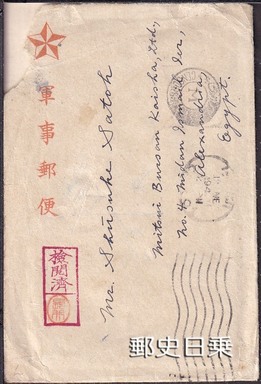 軍事郵便
檢閲濟
Mr. Shūsuke Satoh
Mitsui Bussan Kaisha, Ltd.,
No. 4, Midan Ismail
Alexandria,
Egypt.
郵史日乗